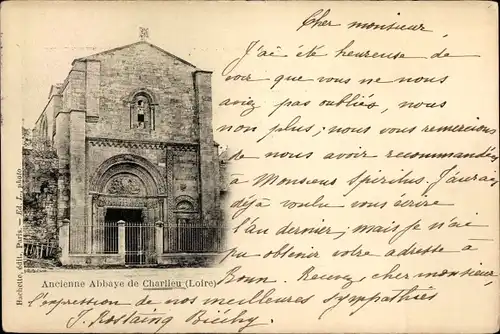 Cher monsieur,
J'ai été heureuse de
voir que vous ne nous
aviez pas oubliés, nous
non plus; nous vous remercions
de nous avoir recommandés
à Monsieur Spiritus. J'aurais
déjà voulu vous écrire
l'an dernier; mais je n'ai
pu obtenir votre adresse à
Bonn. Recevez, cher monsieur,
l'expression de nos meilleures sympathies
J. Rostaing
Ancienne Abbaye de Charlieu (Loire)
Hachette, édit. Paris. - Ed. L., photo